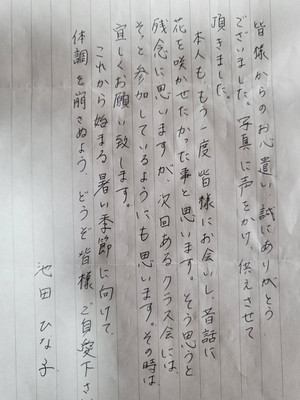 皆様からのお心遣い、誠にありがとう
ございました。写真に声をかけ、供えさせて
頂きました。
本人ももう一度皆様にお会いし、昔話に
花を咲かせたかった事と思います。そう思うと
残念に思いますが、次回あるクラス会には
そっと参加しているようにも思います。その時は
宜しくお願い致します。
これから始まる暑い季節に向けて、
体調を崩さぬよう、どうぞ皆様ご自愛下さ
池田ひな子